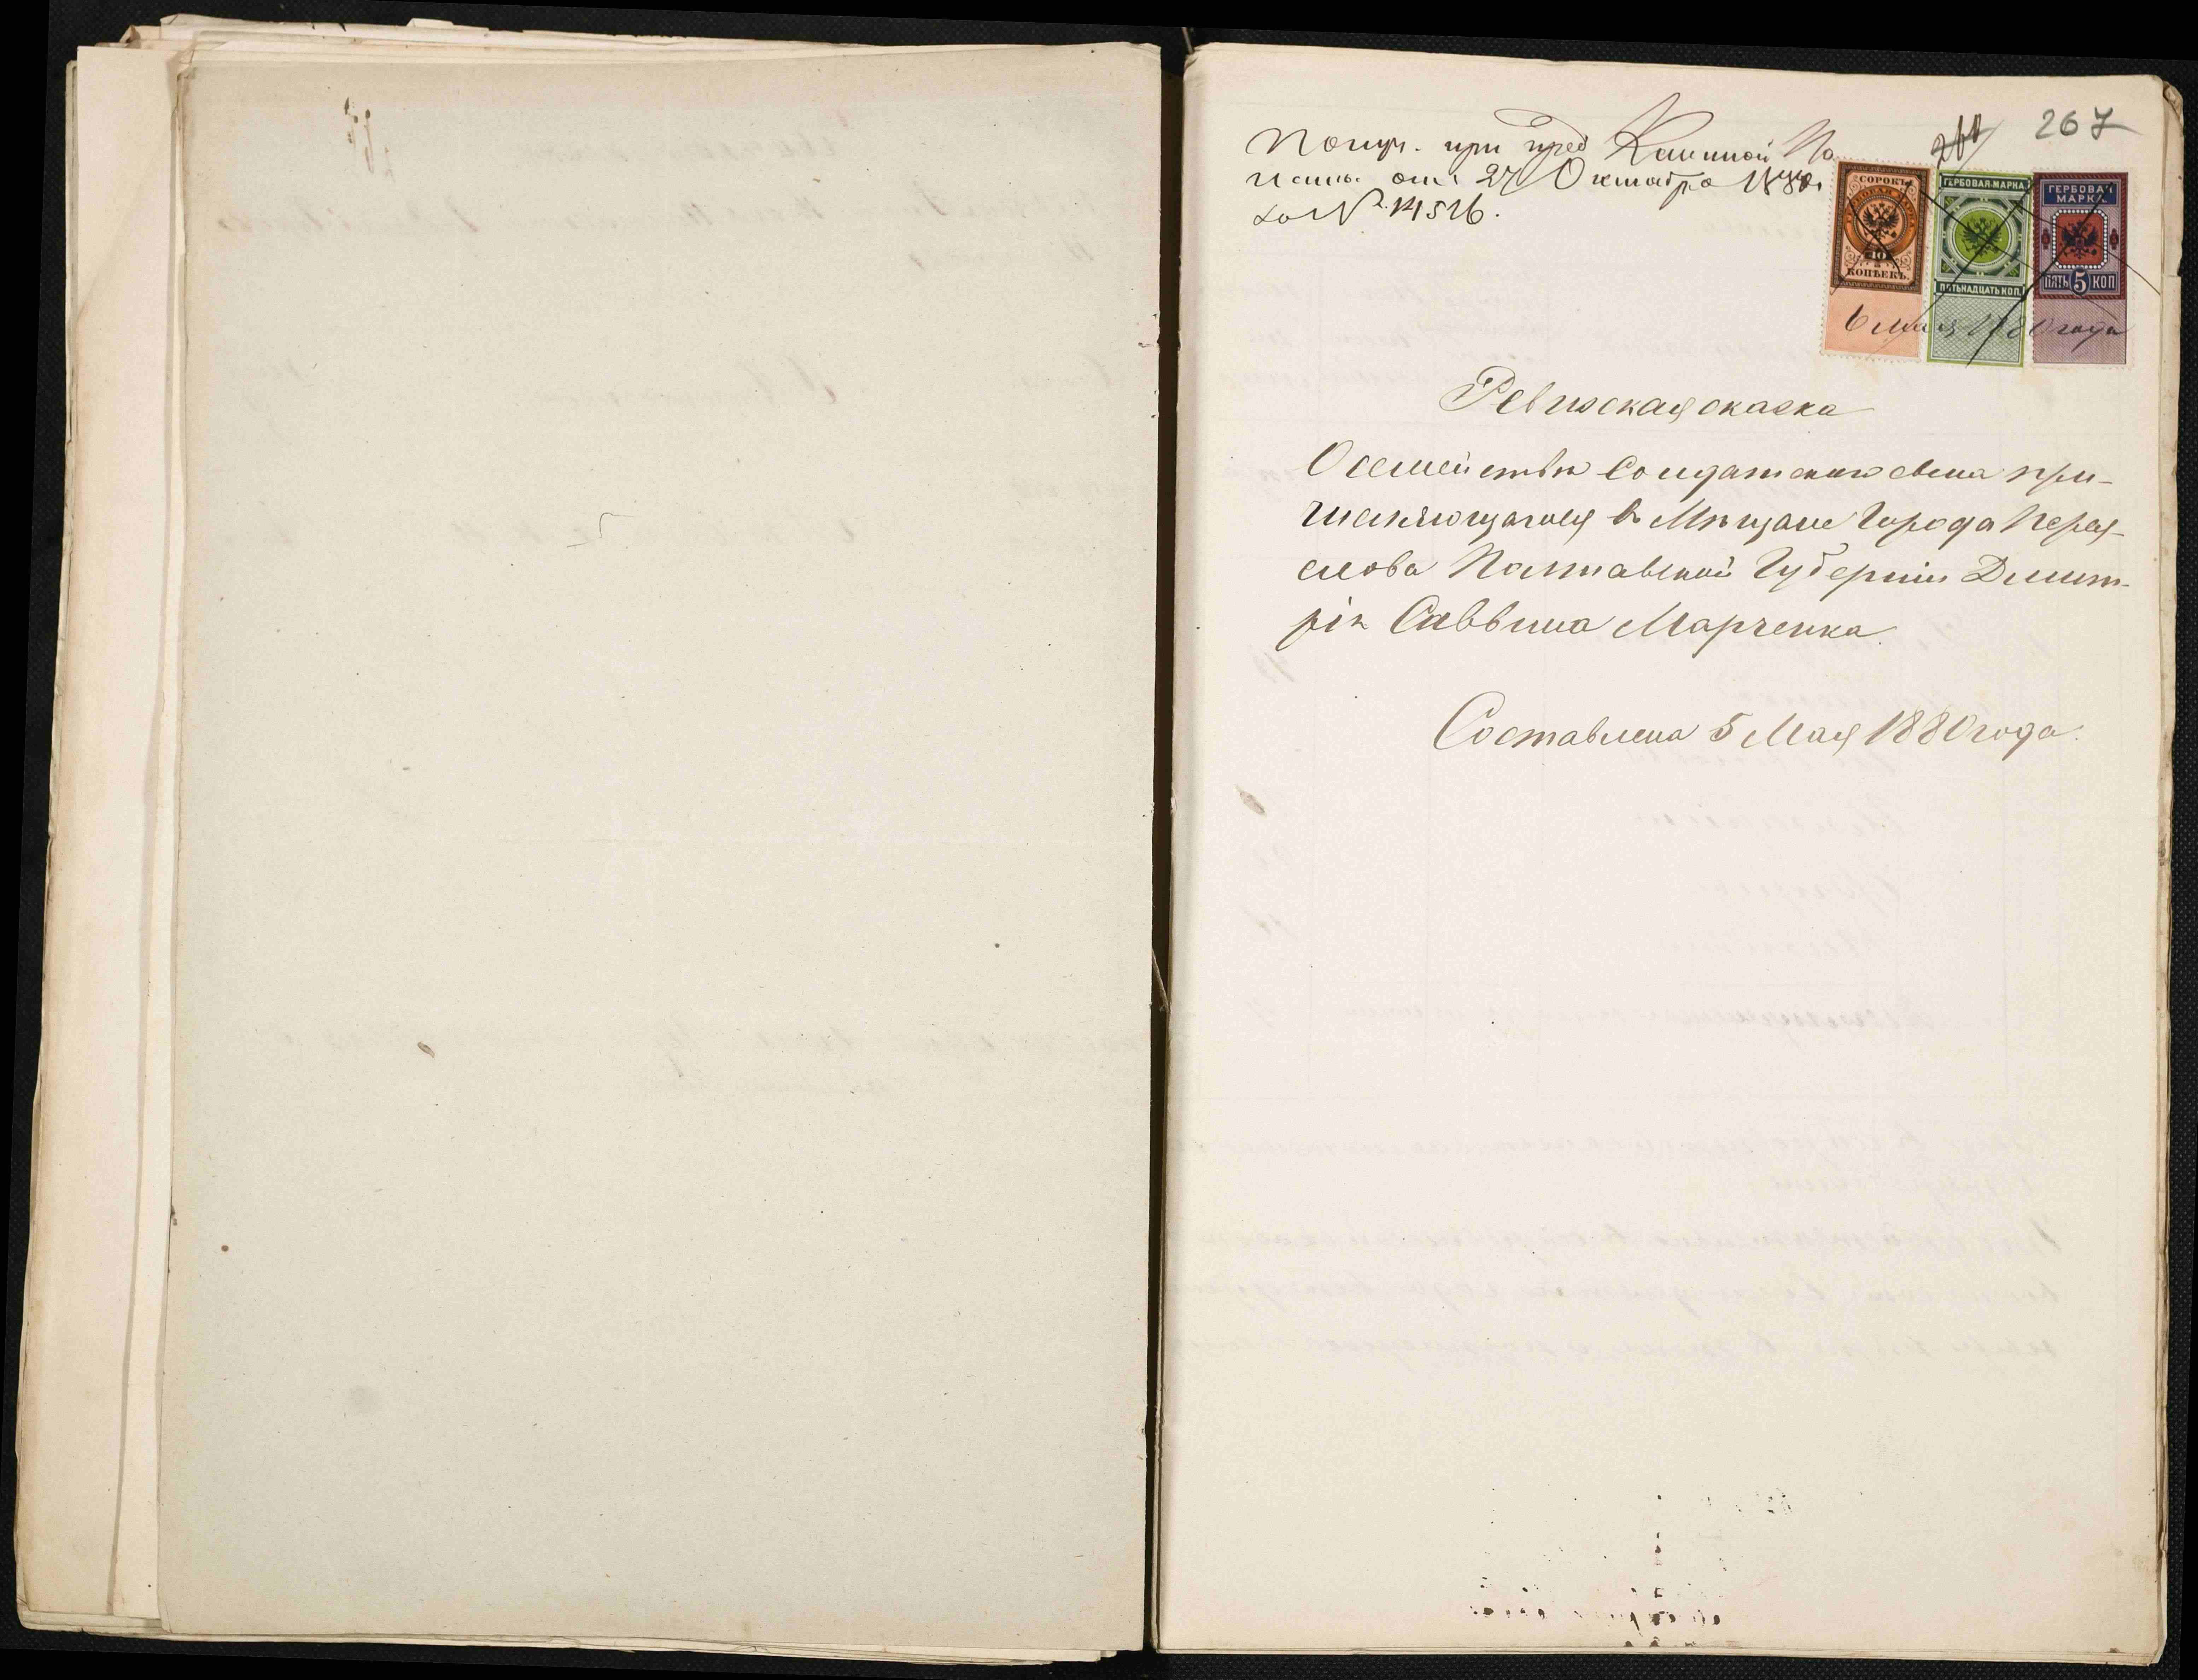 267
Получ. при пред. Казенной Па
латы от 27 Октября 1880 г.
за № 14526.
СОРОКЪ
40
КОПѢЕКЪ.
ГЕРБОВАЯ МАРКА
ПЯТЬНАДЦАТЬ КОП.
ГЕРБОВАЯ
МАРКА
ПЯТЬ 5 КОП
6 мая 1880 года
Ревизская сказка
О семействѣ Солдатскаго сына при-
числяющагося въ Мѣщане Города Перея-
слова Полтавской Губерніи Димит-
рія Саввина Марченка.
Составлена 5 Мая 1880 года.